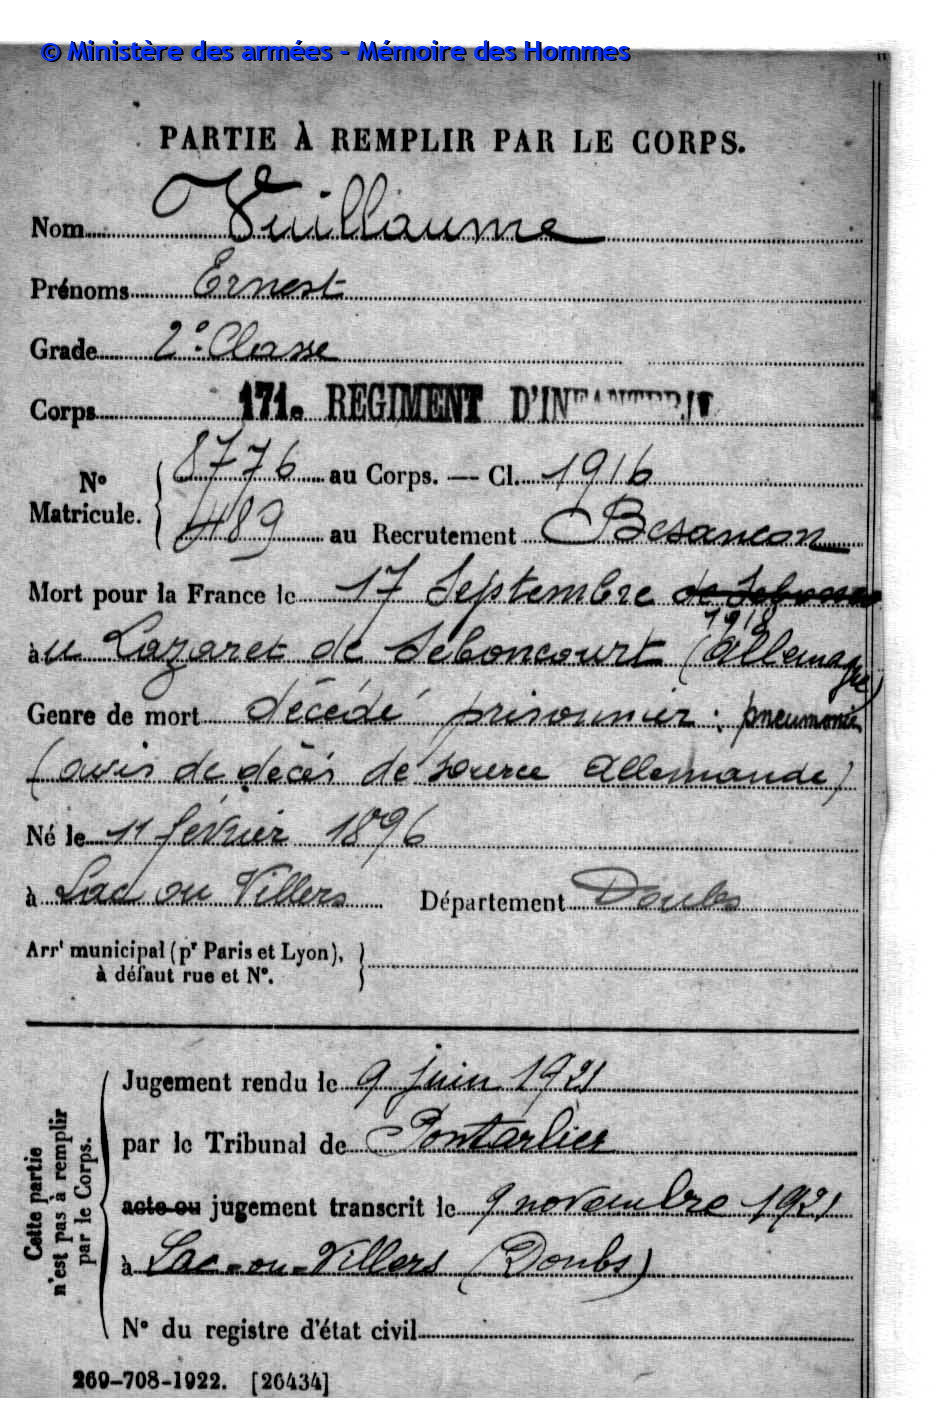 © Ministère des armées - Mémoire des Hommes
PARTIE À REMPLIR PAR LE CORPS.
Nom Vuillaume
Prénoms Ernest
Grade 2e Classe
Corps 171e RÉGIMENT D'INFANTERIE
No Matricule. { 8776 au Corps. — Cl. 1916
489 au Recrutement Besancon
Mort pour la France le 17 Septembre
1918
àu Lazaret de Seboncourt (Allemagne)
Genre de mort décédé prisonnier : pneumonie
(avis de décès de source Allemande)
Né le 11 février 1896
à Lac ou Villers Département Doubs
Arrt municipal (pr Paris et Lyon), }
à défaut rue et No.
Cette partie n'est pas à remplir par le Corps.
Jugement rendu le 9 juin 1921
par le Tribunal de Pontarlier
acte ou jugement transcrit le 9 novembre 1921
à Lac-ou-Villers (Doubs)
No du registre d'état civil
269-708-1922. [26434]